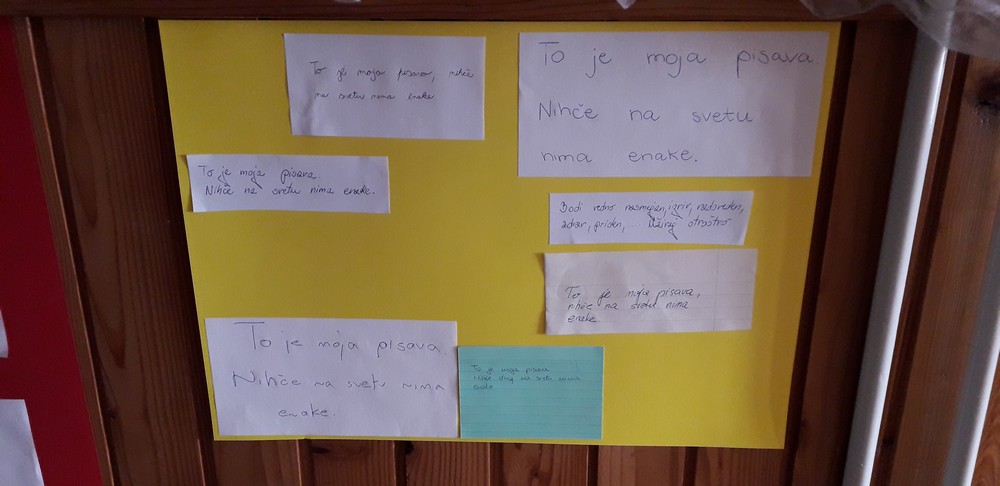 To je moja pisava, nihče
na svetu nima enake
To je moja pisava
Nihče na svetu
nima enake.
To je moja pisava.
Nihče na svetu nima enake.
Bodi vedno nasmejan, igriv, radoveden,
zdrav, priden, ... Uživaj otroštvo
To je moja pisava,
nihče na svetu nima
enake.
To je moja pisava
Nihče na svetu nima
enake.
To je moja pisava
Nihče drug na svetu nima
enake